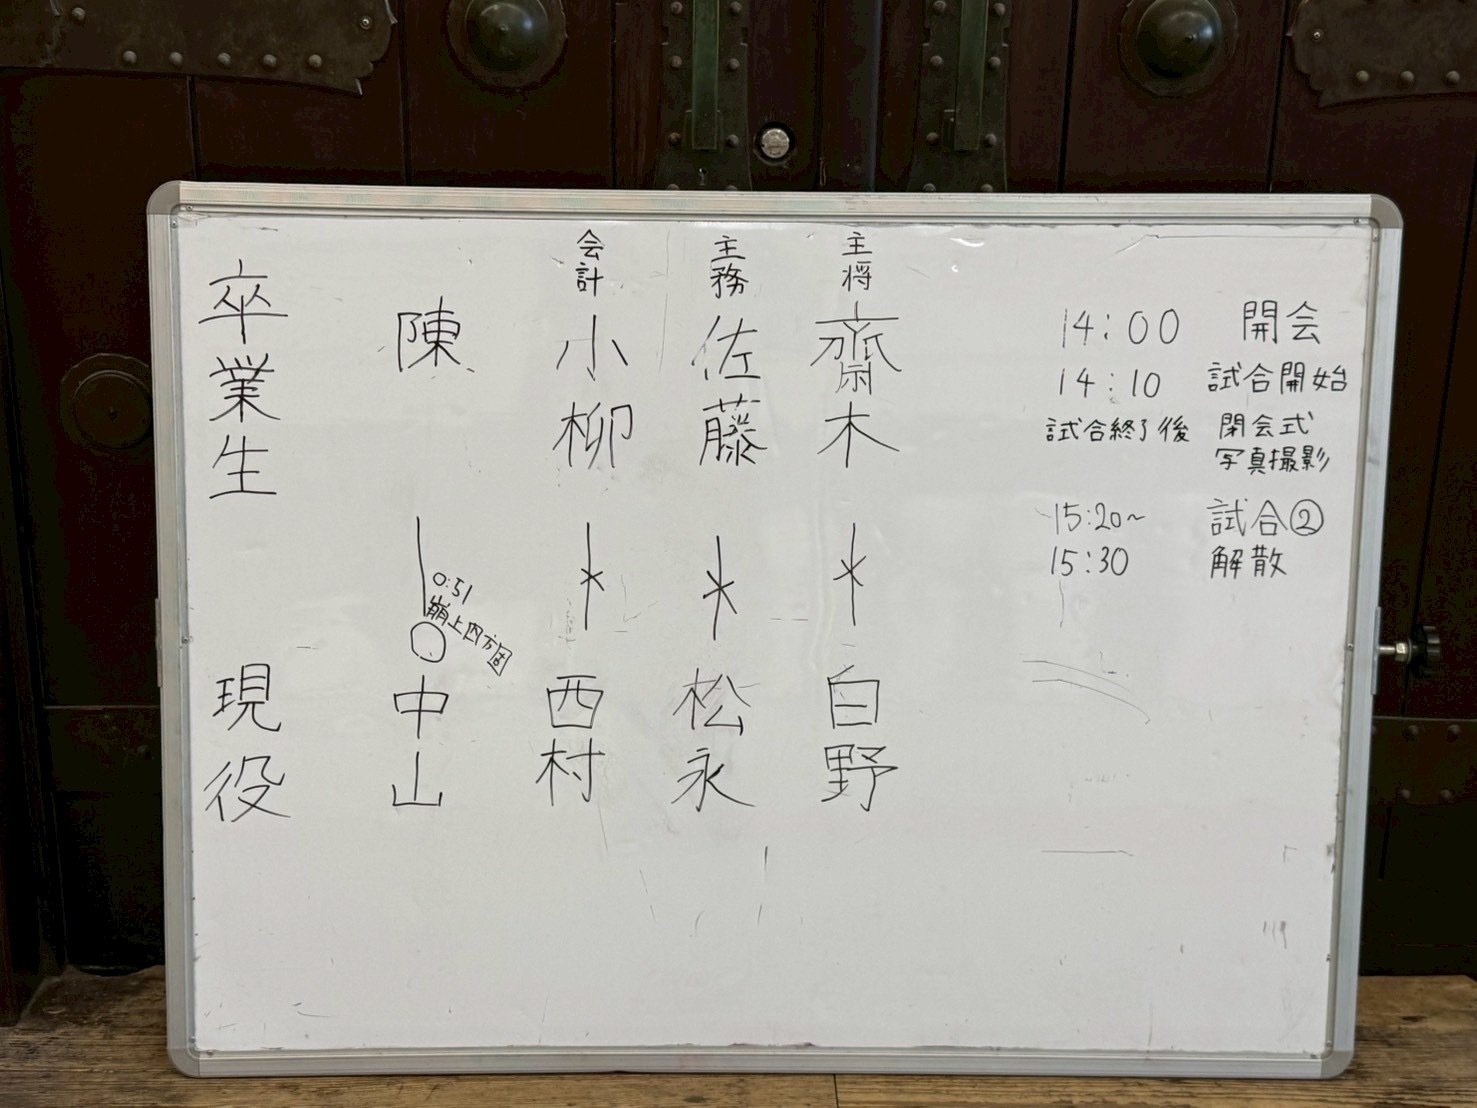 14:00 開会
14:10 試合開始
試合終了後 閉会式
写真撮影
15:20~ 試合②
15:30 解散
主将
齋木
白野
主務
佐藤
松永
会計
小柳
西村
陳
0:51
崩上四方固
中山
卒業生
現役